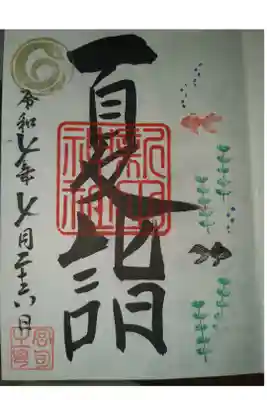 夏詣
令和七年七月二十六日